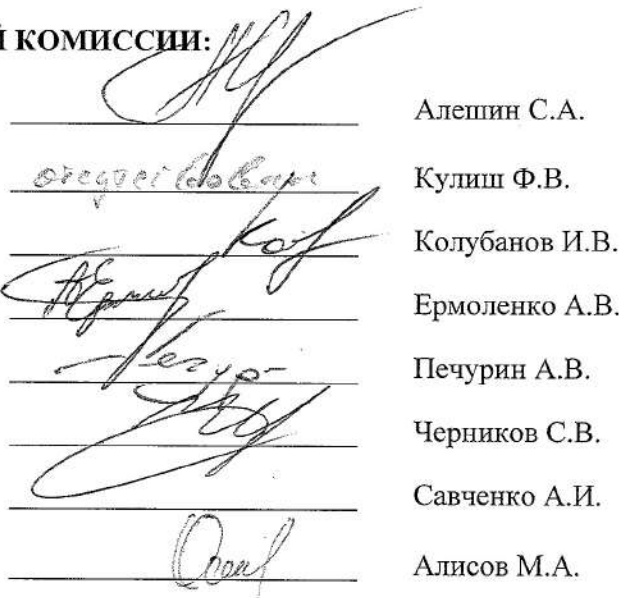 Й КОМИССИИ:
Алешин С.А.
Кулиш Ф.В.
Колубанов И.В.
Ермоленко А.В.
Печурин А.В.
Черников С.В.
Савченко А.И.
Алисов М.А.